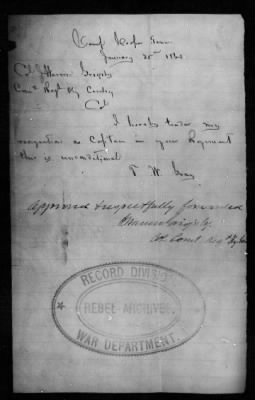 Camp Tenn
January 25th 186
Col
Com Regt Ky Cavalry
Col
I hereby tender my
resignation as Captain in your Regiment
this is unconditional
T. W. Gray
Approved & respectfully forwarded
Col Comd Regt Ky
RECORD DIVISION
REBEL ARCHIVES,
WAR DEPARTMENT.